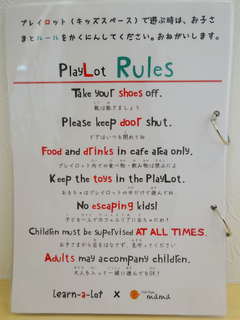 プレイロット（キッズスペース）で遊ぶ時は、お子さ
まとルールをかくにんしてください。おねがいします。
PlayLot Rules
Take your shoes off.
靴は脱ぎましょう
Please keep door shut.
ドアはいつも閉めてね
Food and drinks in cafe area only.
プレイロット内での食べ物・飲み物は禁止だよ
Keep the toys in the PlayLot.
おもちゃはプレイロットの中だけで遊んでね
No escaping kids!
Children must be supervised AT ALL TIMES.
お子さまから目をはなさず、見守ってください
Adults may accompany children.
大人も入って一緒に遊んでもOK!
learn-a-lot x mama